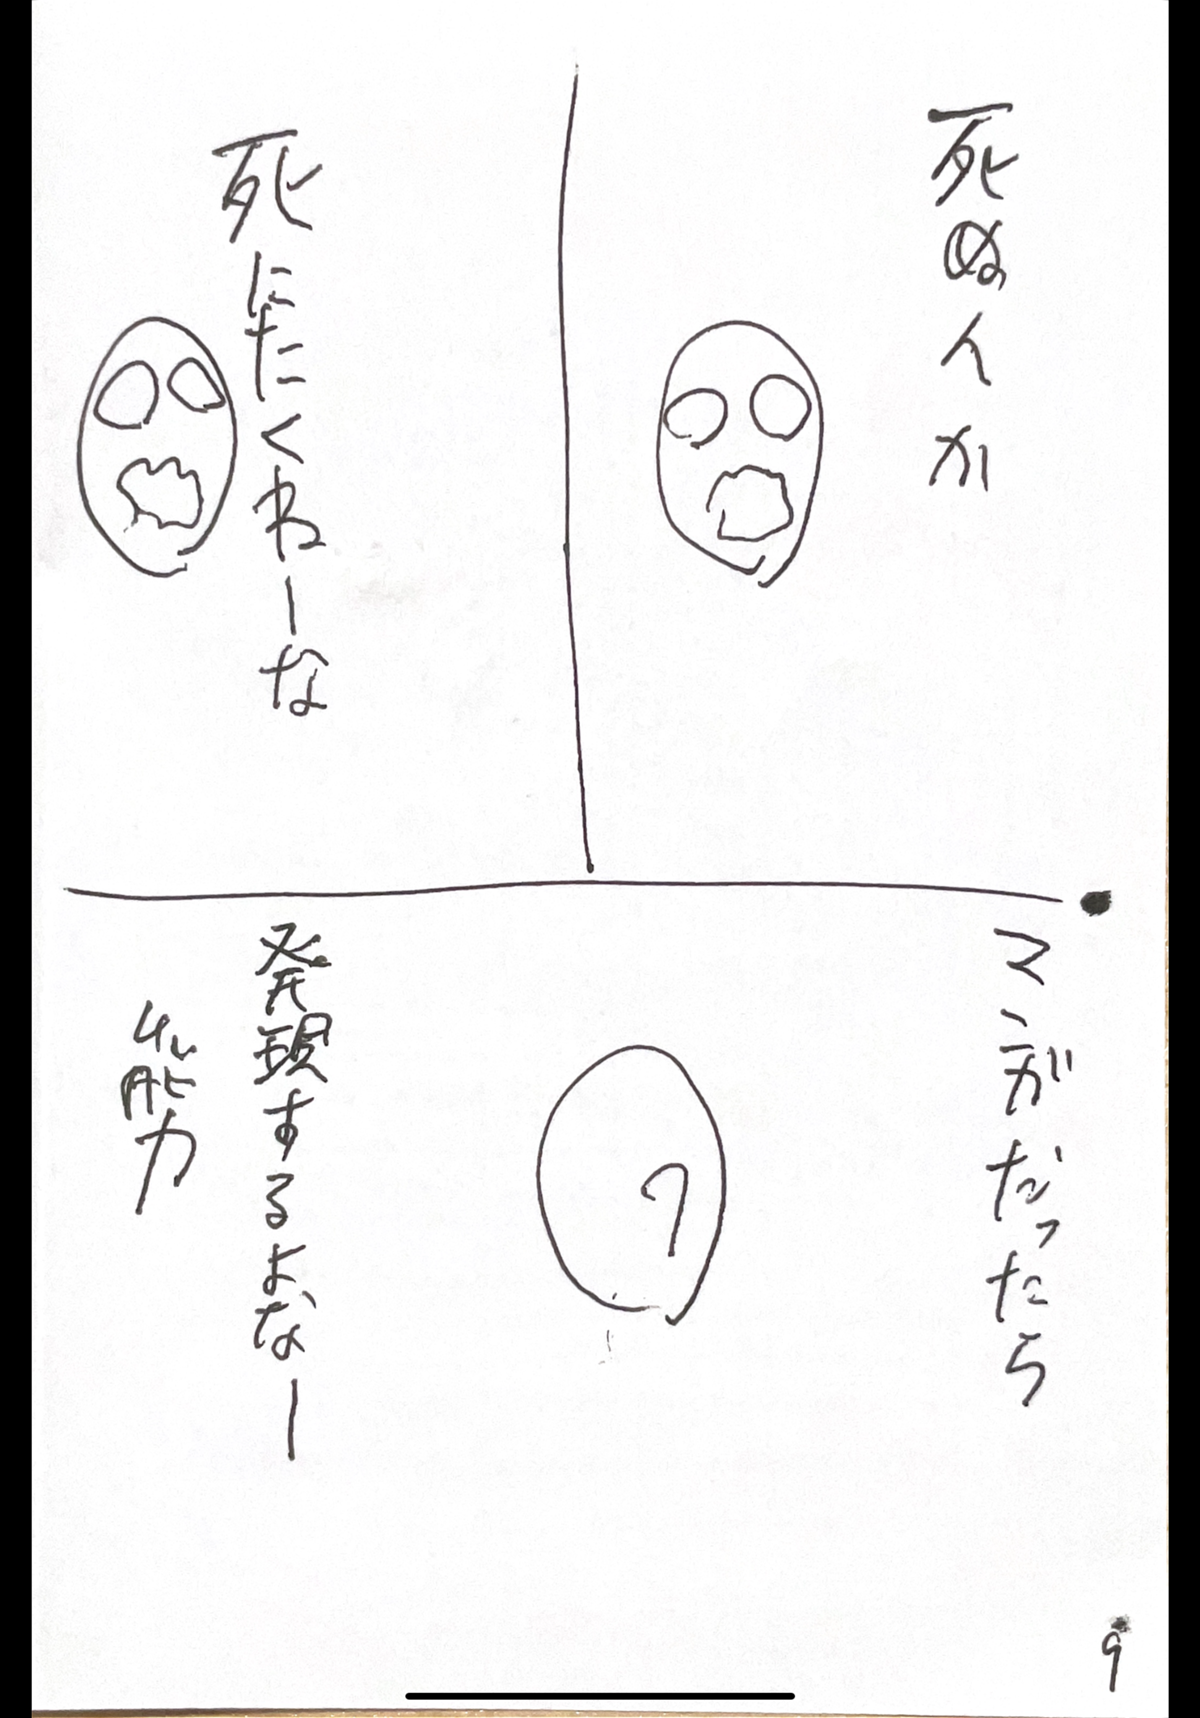 死ぬんか
死にたくねーな
マンガだったら
発現するよなー
能力
9